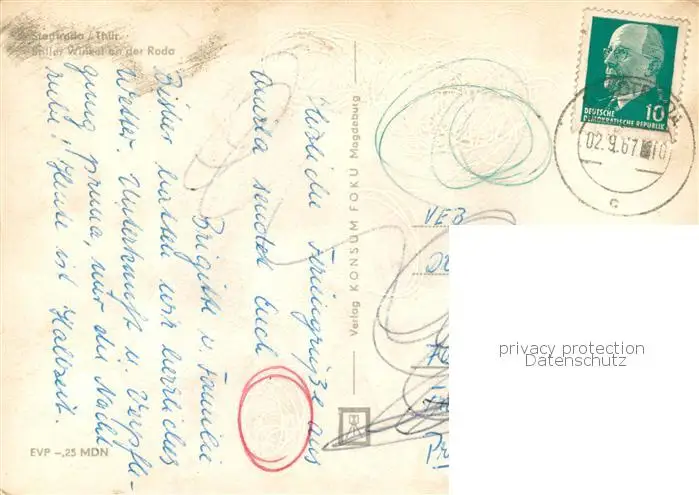 Stadtroda / Thür.
Stiller Winkel an der Roda
Herzliche Feriengrüße aus
sendet Euch
Brigitte u. Familie
Bisher hatten wir herrliches
Wetter. Unterkunft u. Verpfle-
gung prima, nur die Nacht-
ruhe! Heute ist Halbzeit.
EVP –,25 MDN
Verlag KONSUM FOKU Magdeburg
DEUTSCHE
DEMOKRATISCHE REPUBLIK
10
02.9.67
c
VEB
privacy protection
Datenschutz